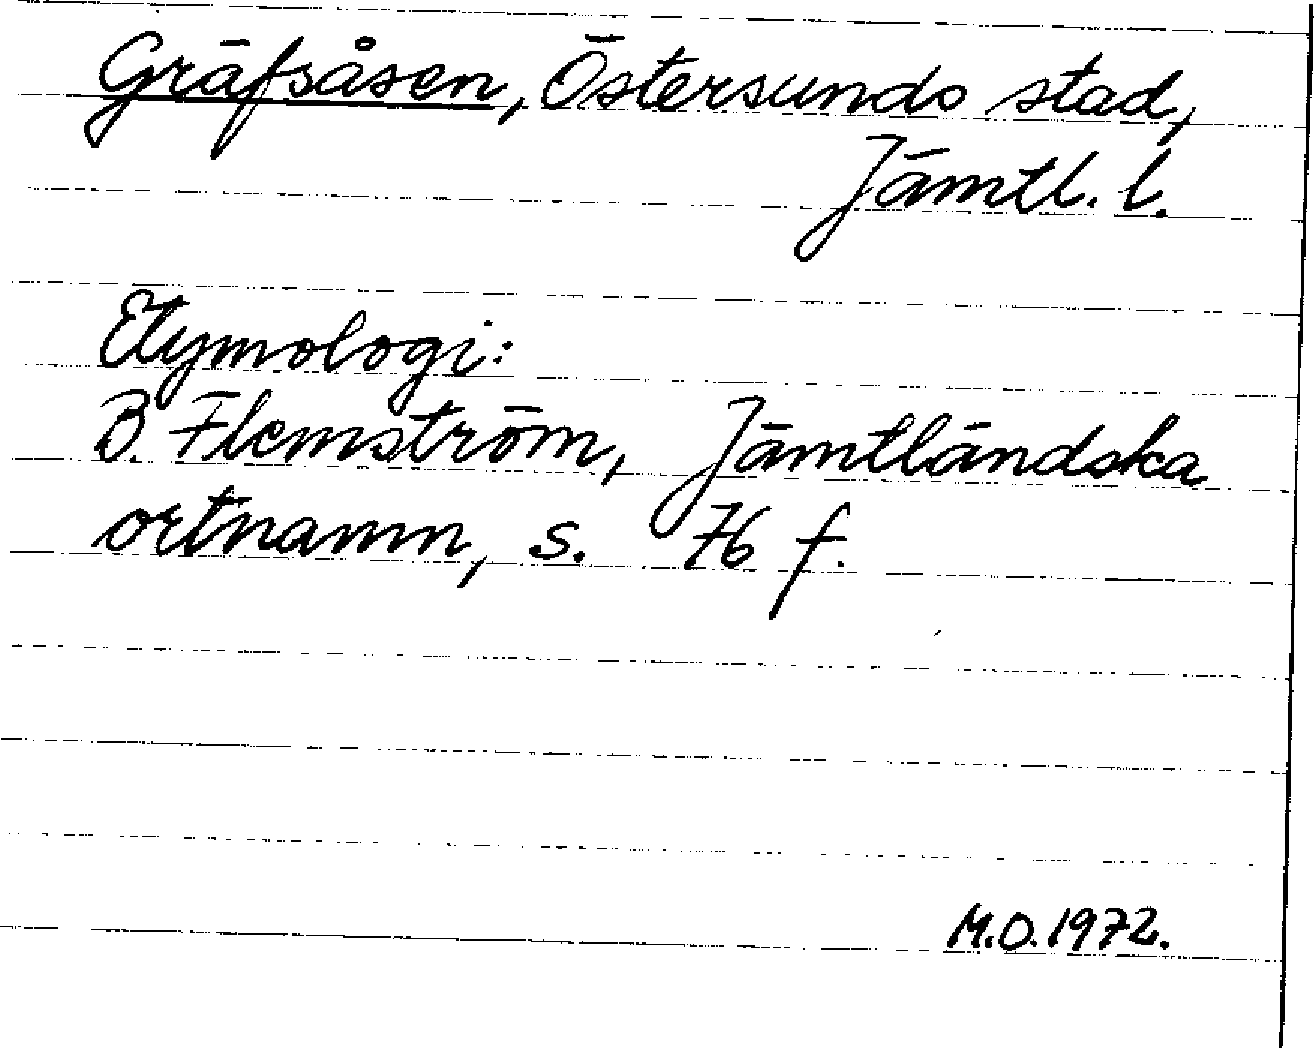 Gräfsåsen, Östersunds stad,
Jämtl. l.
Etymologi:
B. Flemström, Jämtländska
ortnamn, s. 76 f.
M.O. 1972.